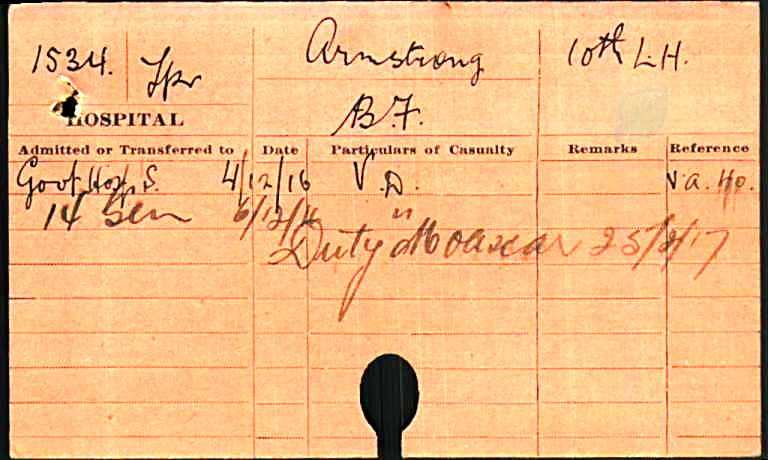 1534. Tpr Armstrong 10th L.H.
B.F.
HOSPITAL
Admitted or Transferred to Date Particulars of Casualty Remarks Reference
Govt. Hosp S. 4/12/16 V.D.
14 Gen 6/12/16 "
Duty Moascar 25/2/17